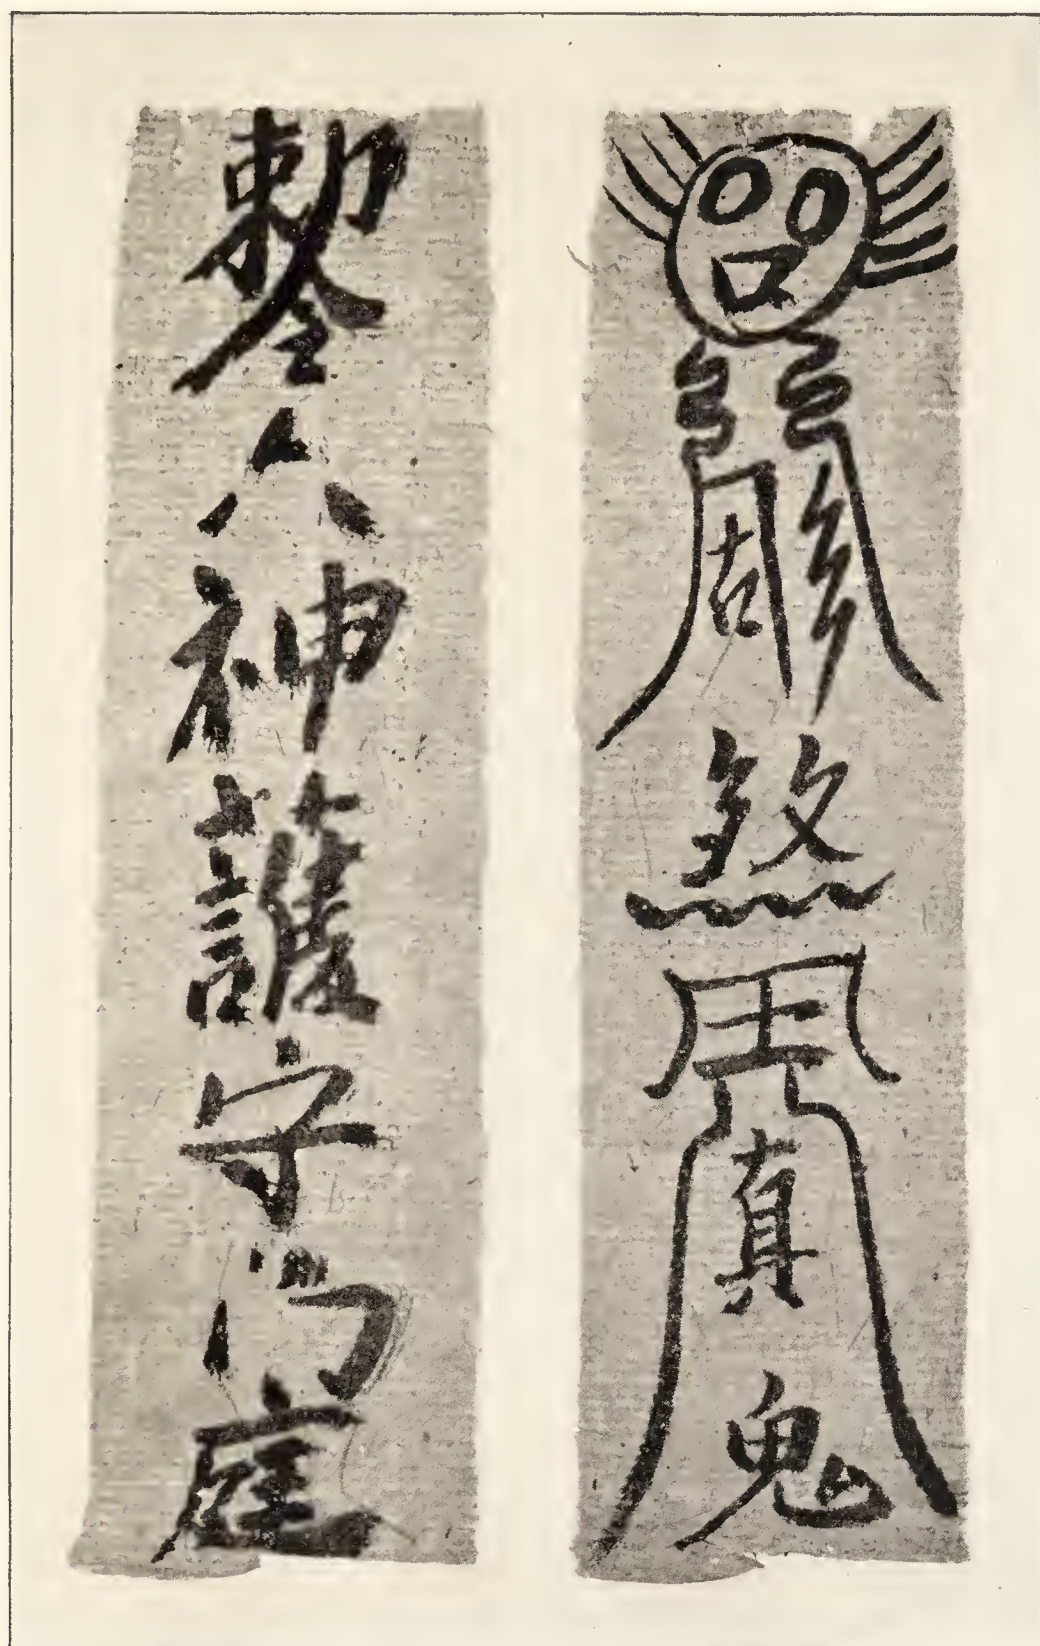 煞真鬼
勅令六神護守門庭